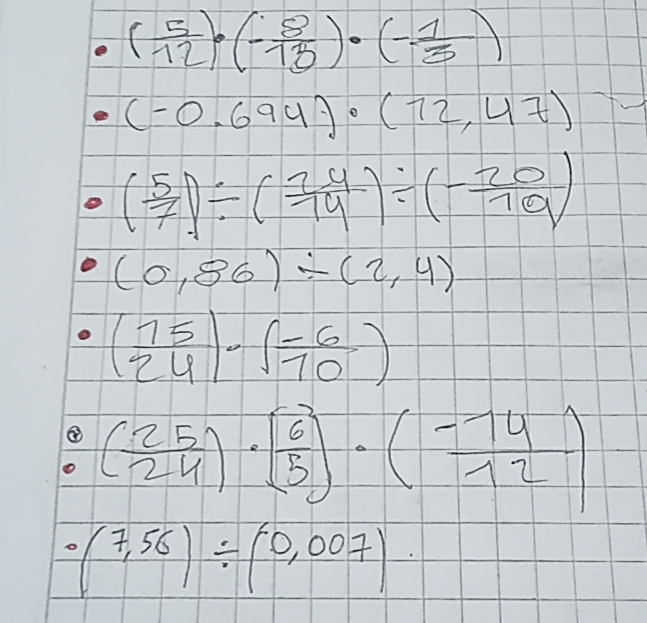 • (5/12) · (-8/13) · (-1/3)
• (-0.694) · (12,47)
• (5/7) ÷ (24/14) ÷ (-20/10)
• (0,86) ÷ (2,4)
• (15/24) · (-6/10)
• (25/24) · (6/5) · (-14/12)
• (7,56) ÷ (0,007)